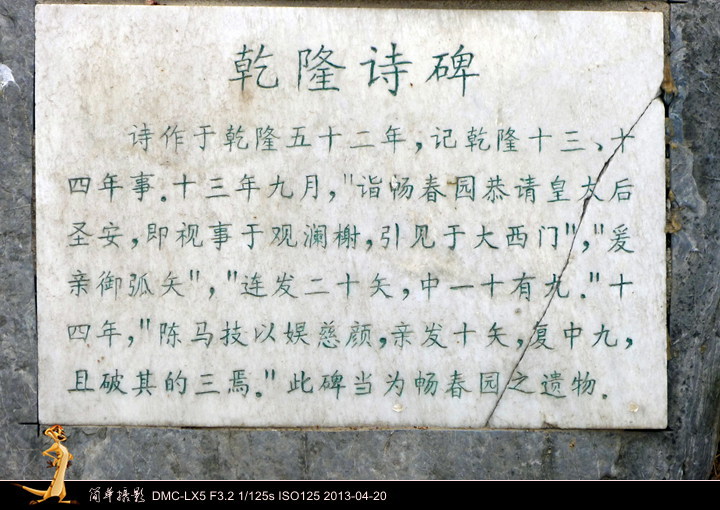 乾隆诗碑
诗作于乾隆五十二年，记乾隆十三、十
四年事。十三年九月，"诣畅春园恭请皇太后
圣安，即视事于观澜榭，引见于大西门"，"爰
亲御弧矢"，"连发二十矢，中一十有九。"十
四年，"陈马技以娱慈颜，亲发十矢，复中九，
且破其的三焉。"此碑当为畅春园之遗物。
简单摄影 DMC-LX5 F3.2 1/125s ISO125 2013-04-20